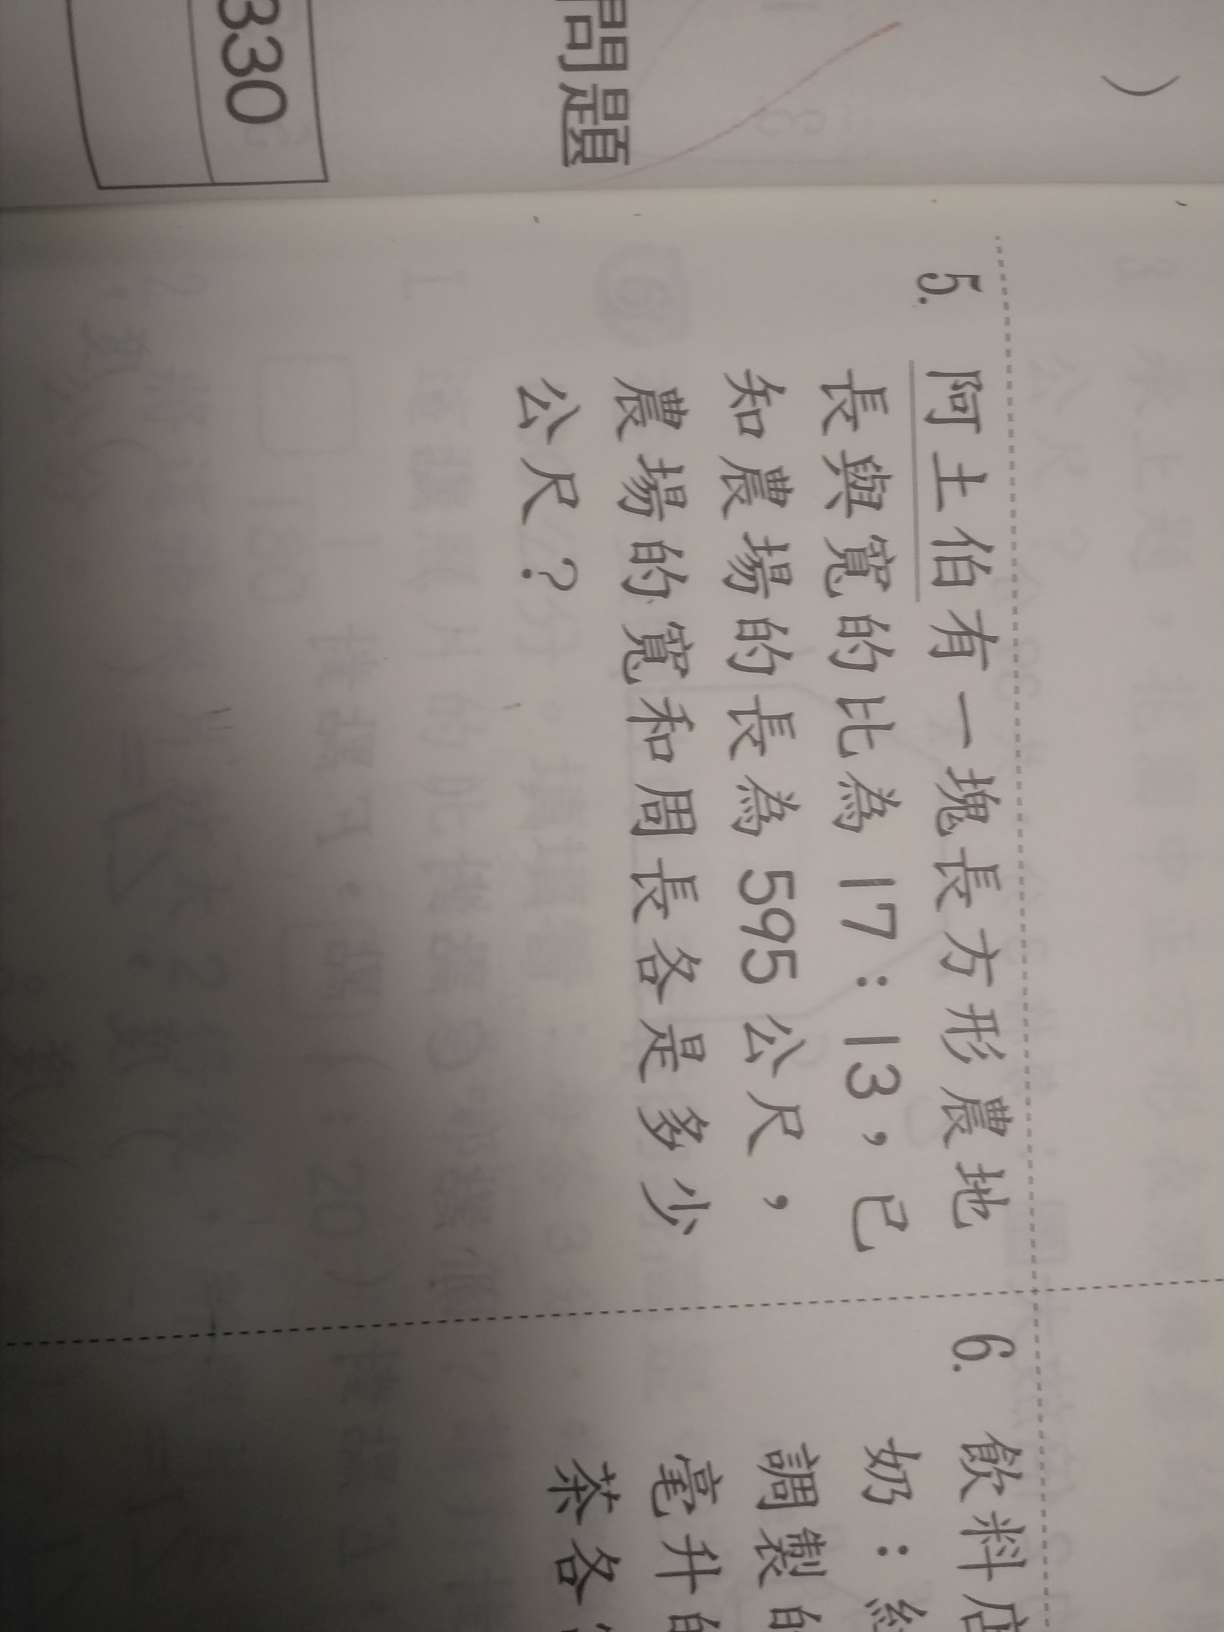 330
問題
)
5. 阿土伯有一塊長方形農地
長與寬的比為 17：13，已
知農場的長為 595 公尺，
農場的寬和周長各是多少
公尺？
6. 飲料店
奶：紅
調製的
毫升的
茶各